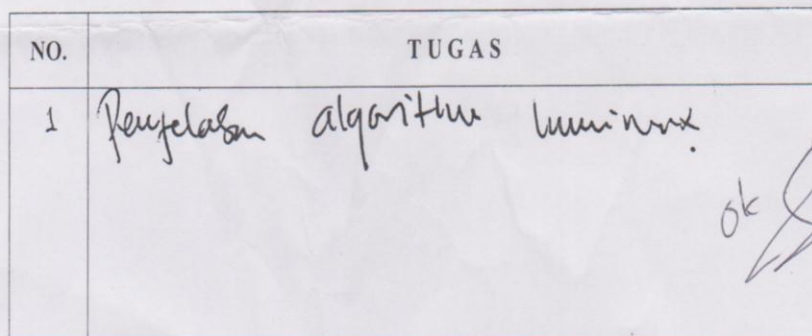 NO. TUGAS
1 Penjelasan algoritma
ok